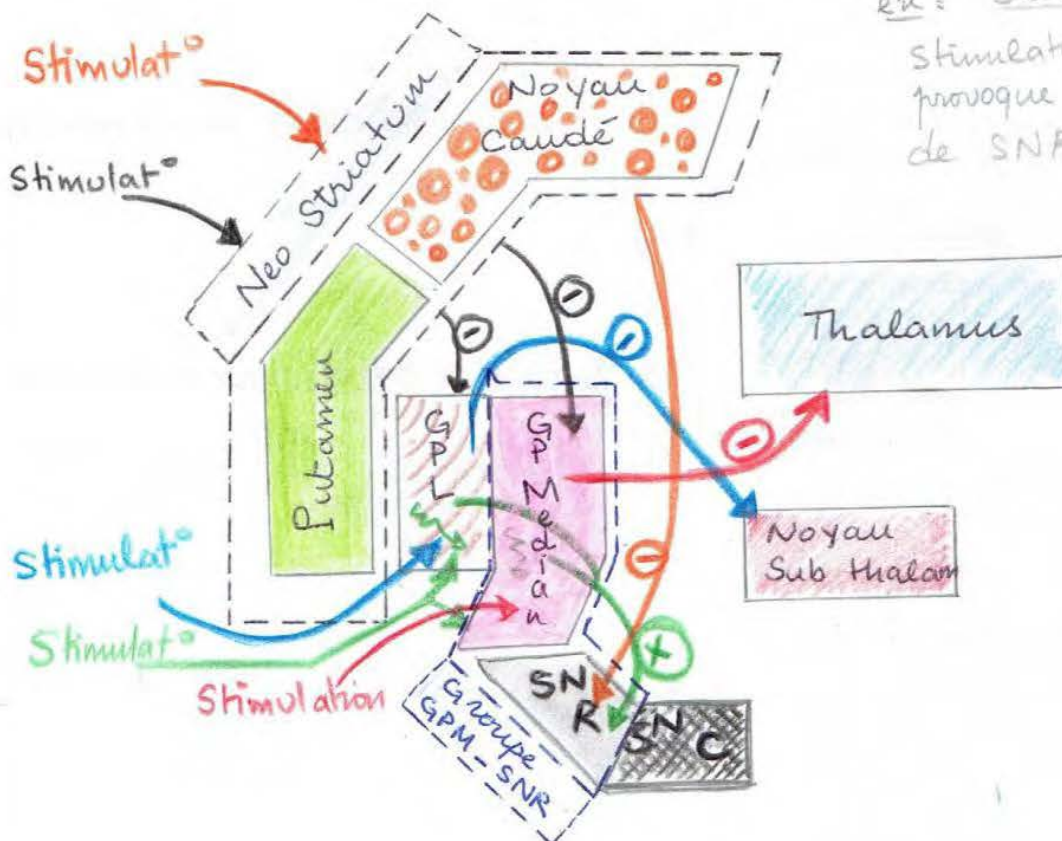 Stimulat°
Stimulat°
Neo Striatum
Noyau
Caudé
ex:
Stimulat
provoque
de SNR
Putamen
GPL
GP Median
Thalamus
Noyau
Sub thalam
Stimulat°
Stimulat°
Stimulation
SN
R
SNC
Groupe
GPM-SNR
-
-
-
-
-
+